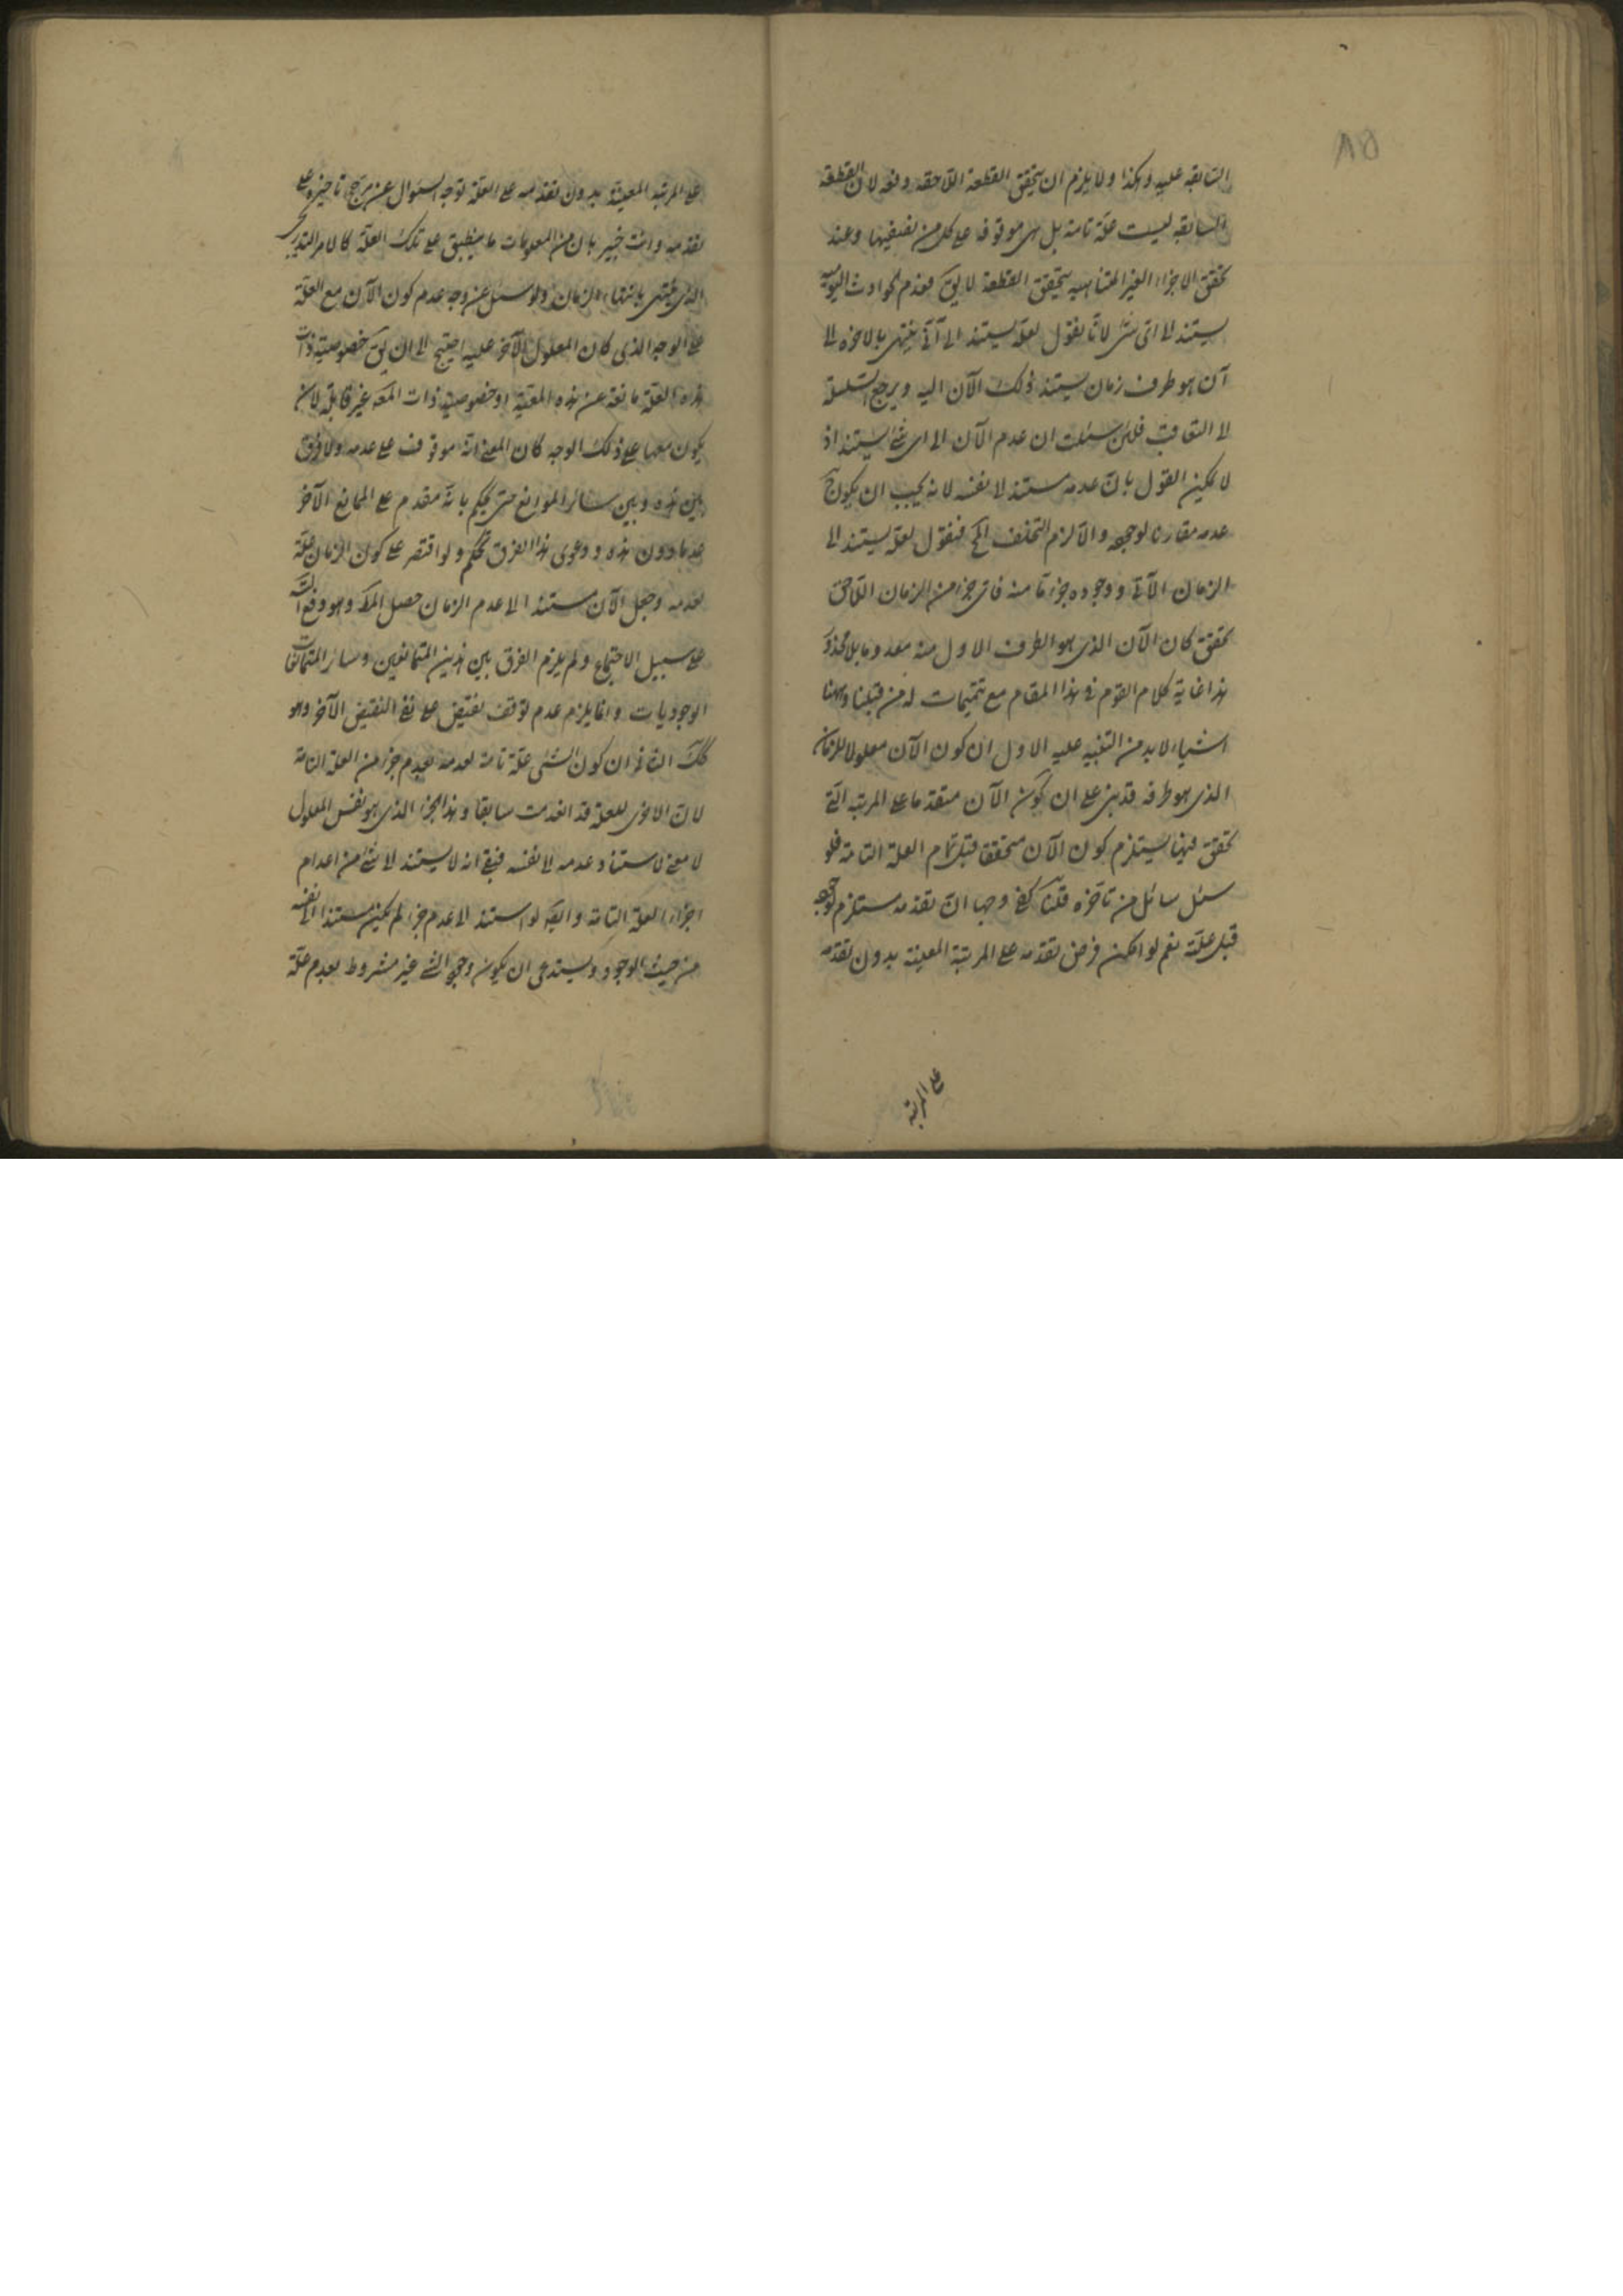 ٨٥
السابقه عليه وهكذا ولا يلزم ان يتحقق القطعة اللاحقه دفعه لان القطعة
السابقه ليست علة تامة بل هى موقوفه على كل من نصفيها وعند
تحقق الاجزاء الغير المتناهيه يتحقق القطعة لا يق فعدم الحوادث اليوميه
يستند الى اى شئ لانا نقول لعله يستند الى آنى ينتهى بالاخره الى
آن هو طرف زمان يستند ذلك الآن اليه ويرجع السلسلة
الى التعاقب فلئن سئلت ان عدم الآن الى اى شئ يستند اذ
لا يمكن القول بان عدمه مستند الى نفسه لانه يجب ان يكون ح
عدمه مقارنا لوجوده والا لزم التخلف المح فنقول لعله يستند الى
الزمان الآتى ووجوده جزء ما منه فاى جزء من الزمان اللاحق
تحقق كان الآن الذى هو الطرف الاول منه معدوما بلا محذور
هذا غاية كلام القوم فى هذا المقام مع تتميمات له من قبلنا وههنا
اشياء لا بد من التنبيه عليه الاول ان كون الآن معلولا للزمان
الذى هو طرفه قد بنى على ان كون الآن متقدما على المرتبه التى
تحقق فيها يستلزم كون الآن متحققا قبل تمام العلة التامة فلو
سئل سائل من تأخره قلنا كفى وجها ان تقدمه مستلزم لوجوده
قبل علته نعم لو امكن فرض تقدمه على المرتبة المعينة بدون تقدمه
على المرتبة
على المرتبه المعينة بدون تقدمه على العلة توجه السئوال عن مرجح تاخيره على
تقدمه وانت خبير بان من المعلومات ما ينطبق على تلك العلة كالامر التدريجى
الذى ينتهى بانتهاء الزمان ولو سئل عن وجه عدم كون الآن مع العلة
على الوجه الذى كان المعلول الآخر عليه احتيج الى ان يق خصوصية ذات
هذه العلة مانعة عن هذه المعية او خصوصية ذات المعه غير قابلة لان
يكون معها على ذلك الوجه كان المعنى انه موقوف على عدمه ولا فرق
بين هذه وبين سائر الموانع حتى يحكم بانه مقدم على المانع الآخر
عدما دون هذه ودعوى هذا الفرق تحكم ولو اقتصر على كون الزمان علة
لعدمه وجعل الآن مستندا الى عدم الزمان حصل المط وهو دفع
على سبيل الاجتماع ولم يلزم الفرق بين هذين المتمانعين وسائر المتمانعات
الوجوديات وانما يلزم عدم توقف نقيض على نفى النقيض الآخر وهو
كك الثانى ان كون الشئ علة تامة لعدمه بعدم جزء من العلة التامة
لان الاخرى للعلة قد انعدمت سابقا وهذا الجزء الذى هو نفس المعلول
لا معنى لاستناد عدمه الى نفسه فبقى انه لا يستند الى شئ من اعدام
اجزاء العلة التامة وايضا لو استند الى عدم جزء لم يكن مستندا الى نفسه
من حيث الوجود ويستدعى ان يكون وجود الشئ غير مشروط بعدم علة